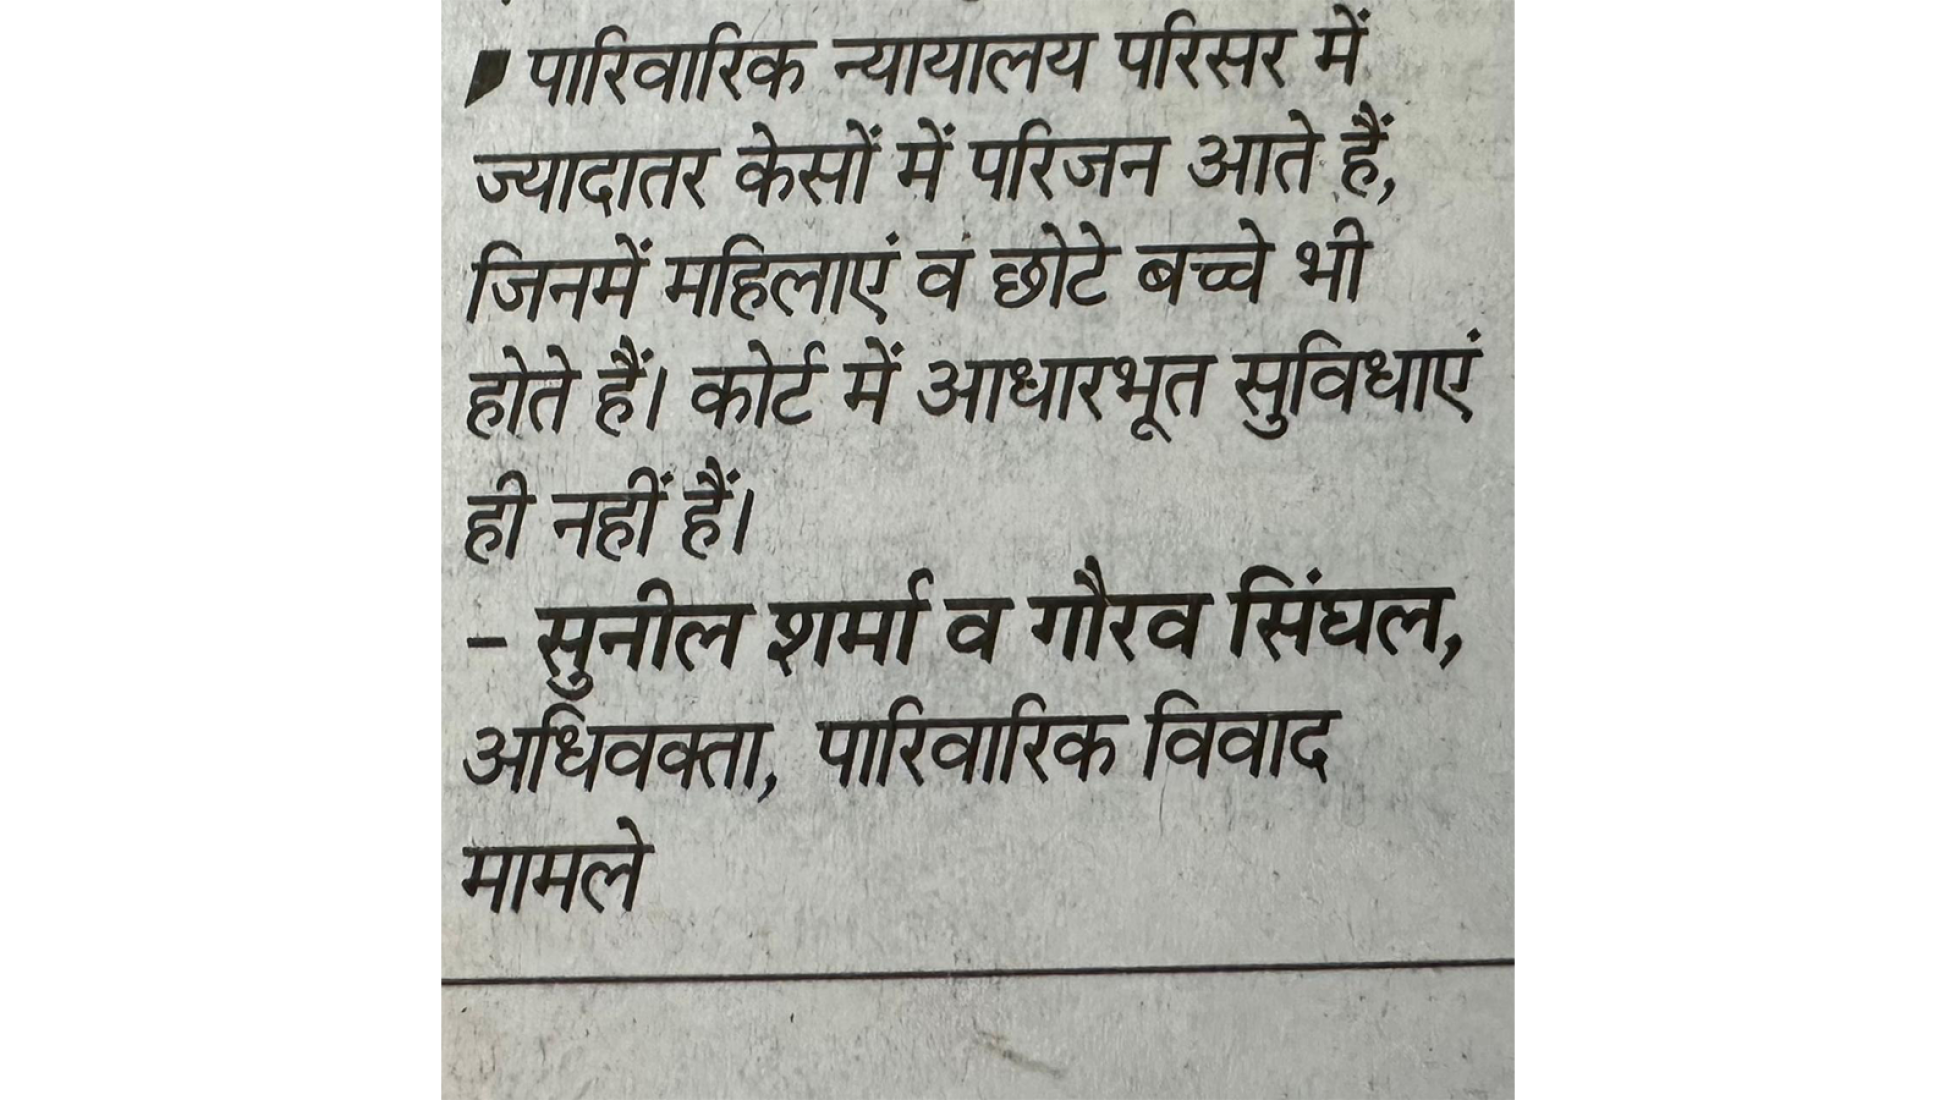 पारिवारिक न्यायालय परिसर में
ज्यादातर केसों में परिजन आते हैं,
जिनमें महिलाएं व छोटे बच्चे भी
होते हैं। कोर्ट में आधारभूत सुविधाएं
ही नहीं हैं।
– सुनील शर्मा व गौरव सिंघल,
अधिवक्ता, पारिवारिक विवाद
मामले